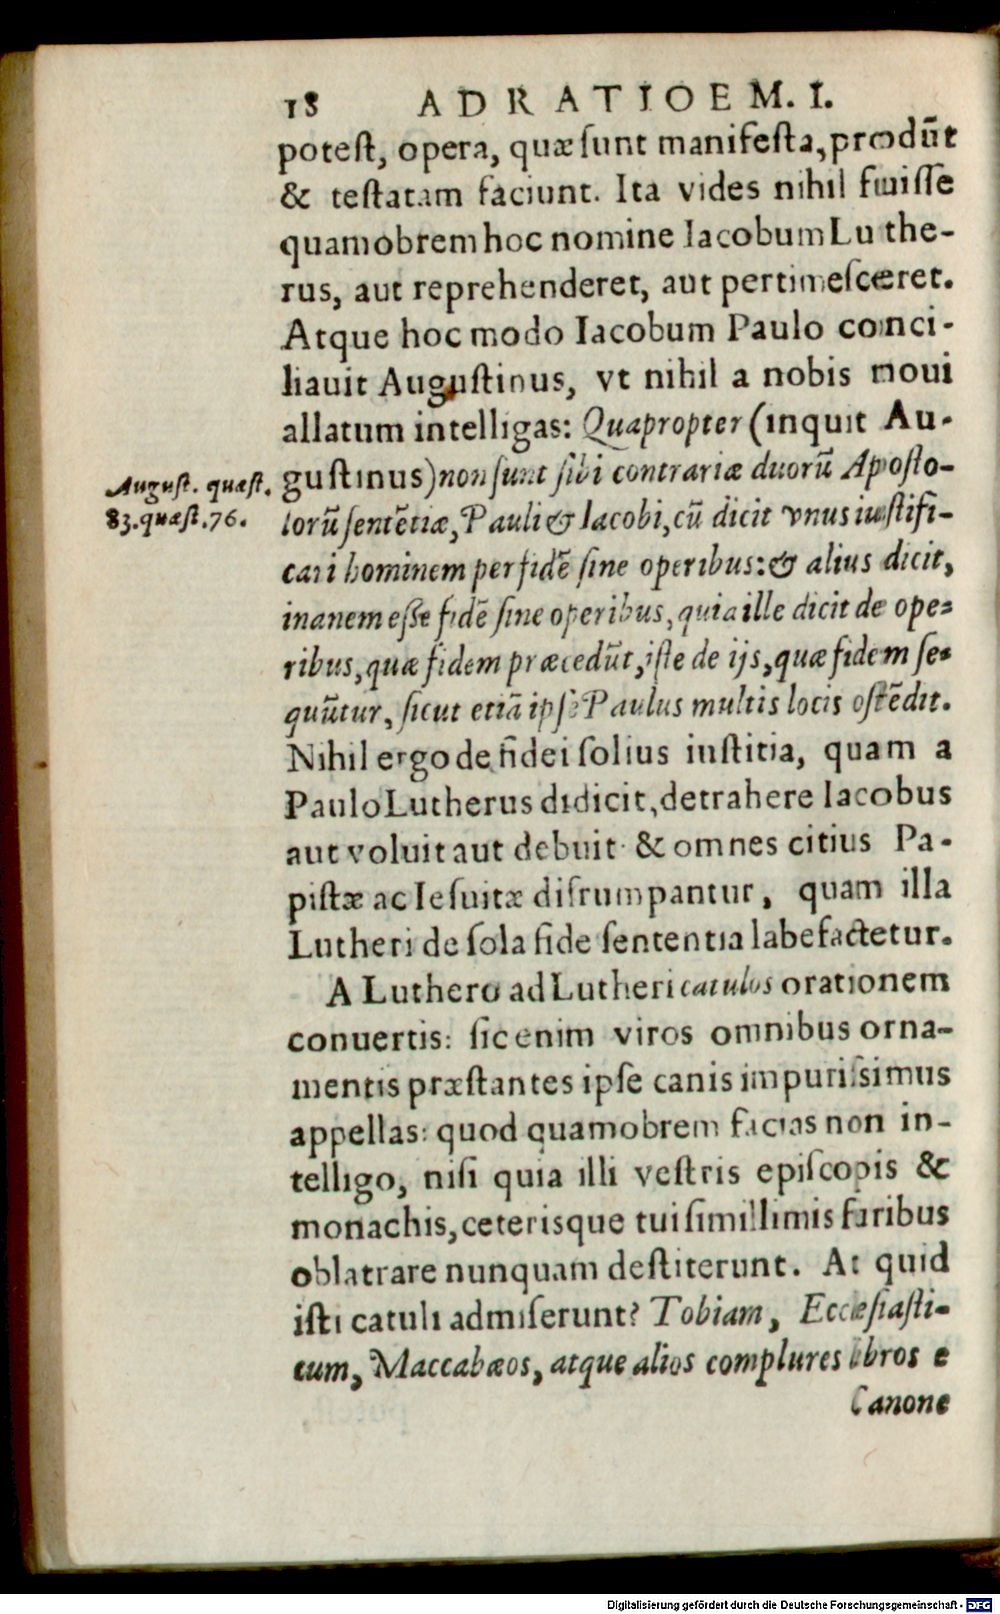 18 AD RATIOEM. I.
potest, opera, quæ sunt manifesta, produ̅t
& testatam faciunt. Ita vides nihil fuisse
quamobrem hoc nomine Iacobum Luthe-
rus, aut reprehenderet, aut pertimesceret.
Atque hoc modo Iacobum Paulo conci-
liauit Augustinus, vt nihil a nobis noui
allatum intelligas: Quapropter (inquit Au-
gustinus) non sunt sibi contrariæ duorū Aposto-
lorū sentētiæ, Pauli & Iacobi, cū dicit vnus iustifi-
cari hominem per fidē sine operibus: & alius dicit,
inanem esse fidē sine operibus, quia ille dicit de ope-
ribus, quæ fidem præcedūt, iste de ijs, quæ fidem se-
quūtur, sicut etiā ipse Paulus multis locis ostēdit.
August. quæst.
83. quæst. 76.
Nihil ergo de fidei solius iustitia, quam a
Paulo Lutherus didicit, detrahere Iacobus
aut voluit aut debuit & omnes citius Pa-
pistæ ac Iesuitæ disrumpantur, quam illa
Lutheri de sola fide sententia labefactetur.
A Luthero ad Lutheri catulos orationem
conuertis: sic enim viros omnibus orna-
mentis præstantes ipse canis impurissimus
appellas: quod quamobrem facias non in-
telligo, nisi quia illi vestris episcopis &
monachis, ceterisque tui simillimis furibus
oblatrare nunquam destiterunt. At quid
isti catuli admiserunt? Tobiam, Ecclesiasti-
cum, Maccabæos, atque alios complures libros e
Canone
Digitalisierung gefördert durch die Deutsche Forschungsgemeinschaft - DFG